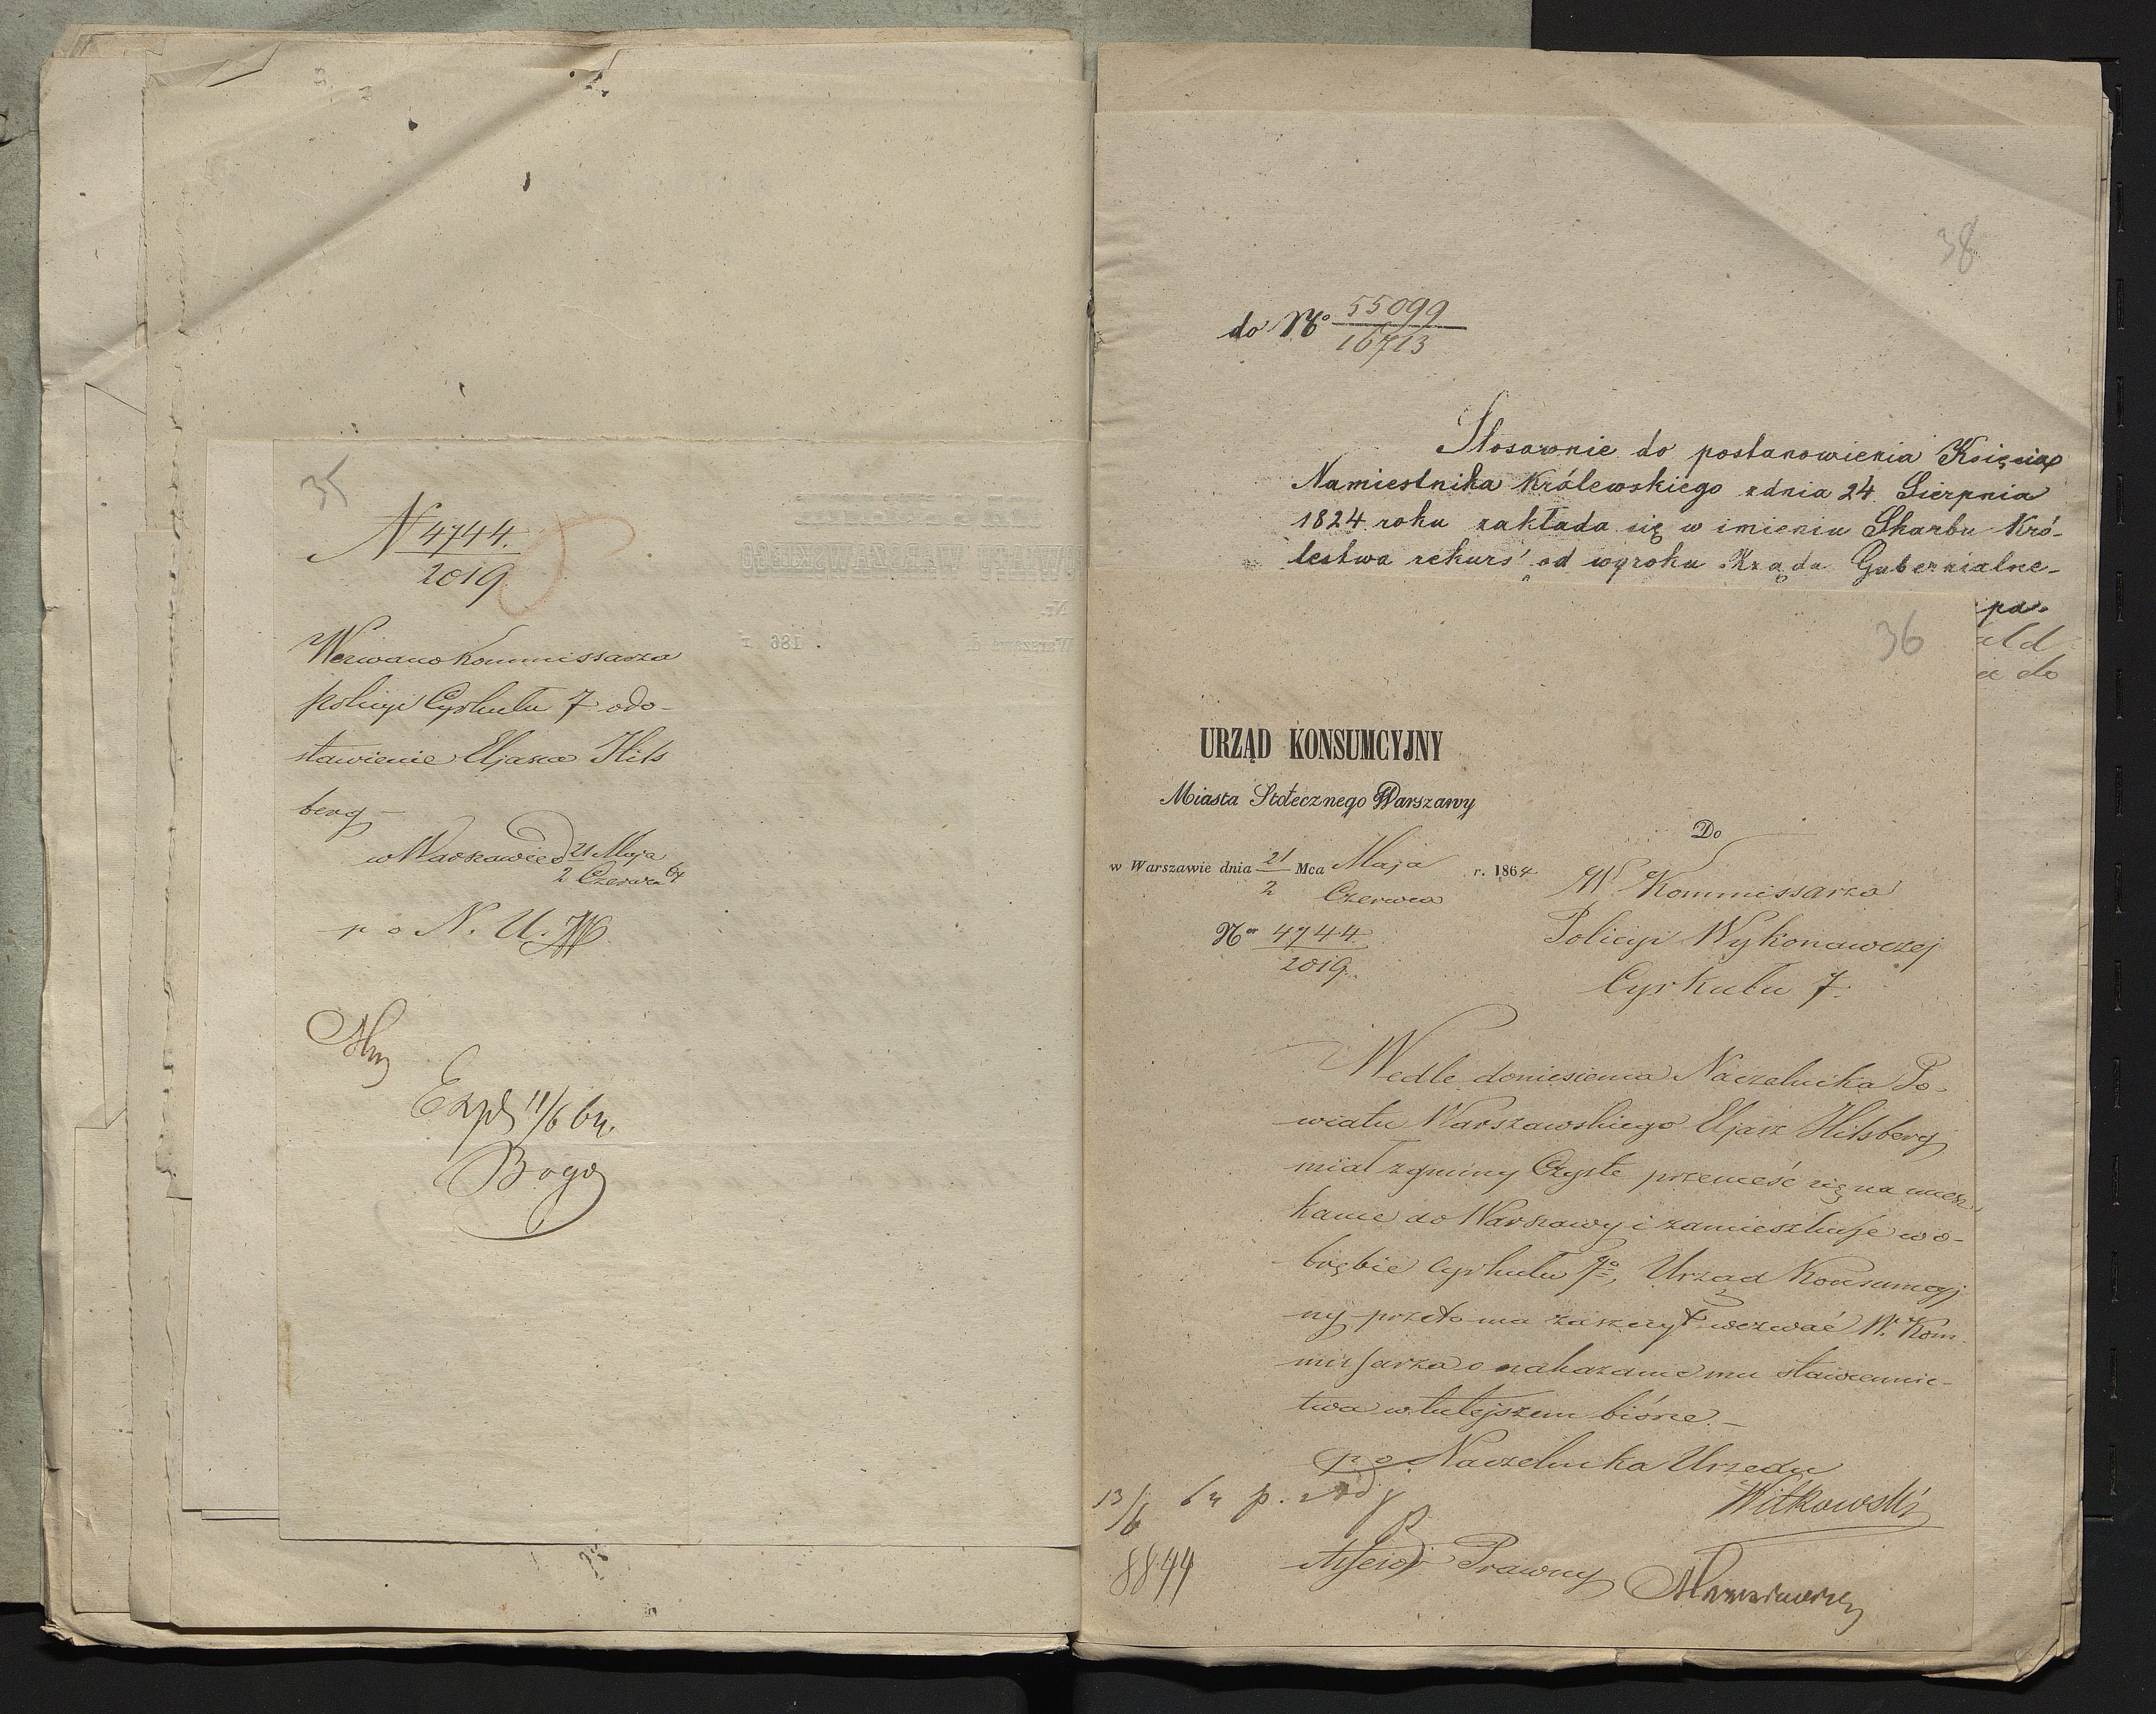 35
N 4744.
2019
Wezwano Kommissarza
policyi Cyrkułu 7 odo-
stawienie Eljasza Hils
berg
w Warszawie d 21 Maja
2 Czerwca 64
p o N. U. W
Expd 11/6 64.
Bogd
38
do No 55099
16713
Stosownie do postanowienia Księcia
Namiestnika Królewskiego z dnia 24 Sierpnia
1824 roku zakłada się w imieniu Skarbu Kró-
lestwa rekurs od wyroku Rządu Gubernialne-
pa-
ald
a do
36
URZĄD KONSUMCYJNY
Miasta Stołecznego Warszawy
Do
w Warszawie dnia 21 Mca Maja r. 1864
2 Czerwca
W Kommissarza
Nor 4744.
2019.
Policyi Wykonawczej
Cyrkułu 7.
Wedle doniesienia Naczelnika Po-
wiatu Warszawskiego Eljasz Hilsberg
miał z gminy Czyste przenieść się na miesz
kanie do Warszawy i zamieszkuje w o-
brębie Cyrkułu 7o, Urząd Konsumcyj
ny przeto ma zaszczyt wezwać W. Kom-
missarza o nakazanie mu stawiennic-
twa w tutejszem biórze.-
p o. Naczelnika Urzędu
Witkowski
13/6 64 p.
8844
Assesor Prawny